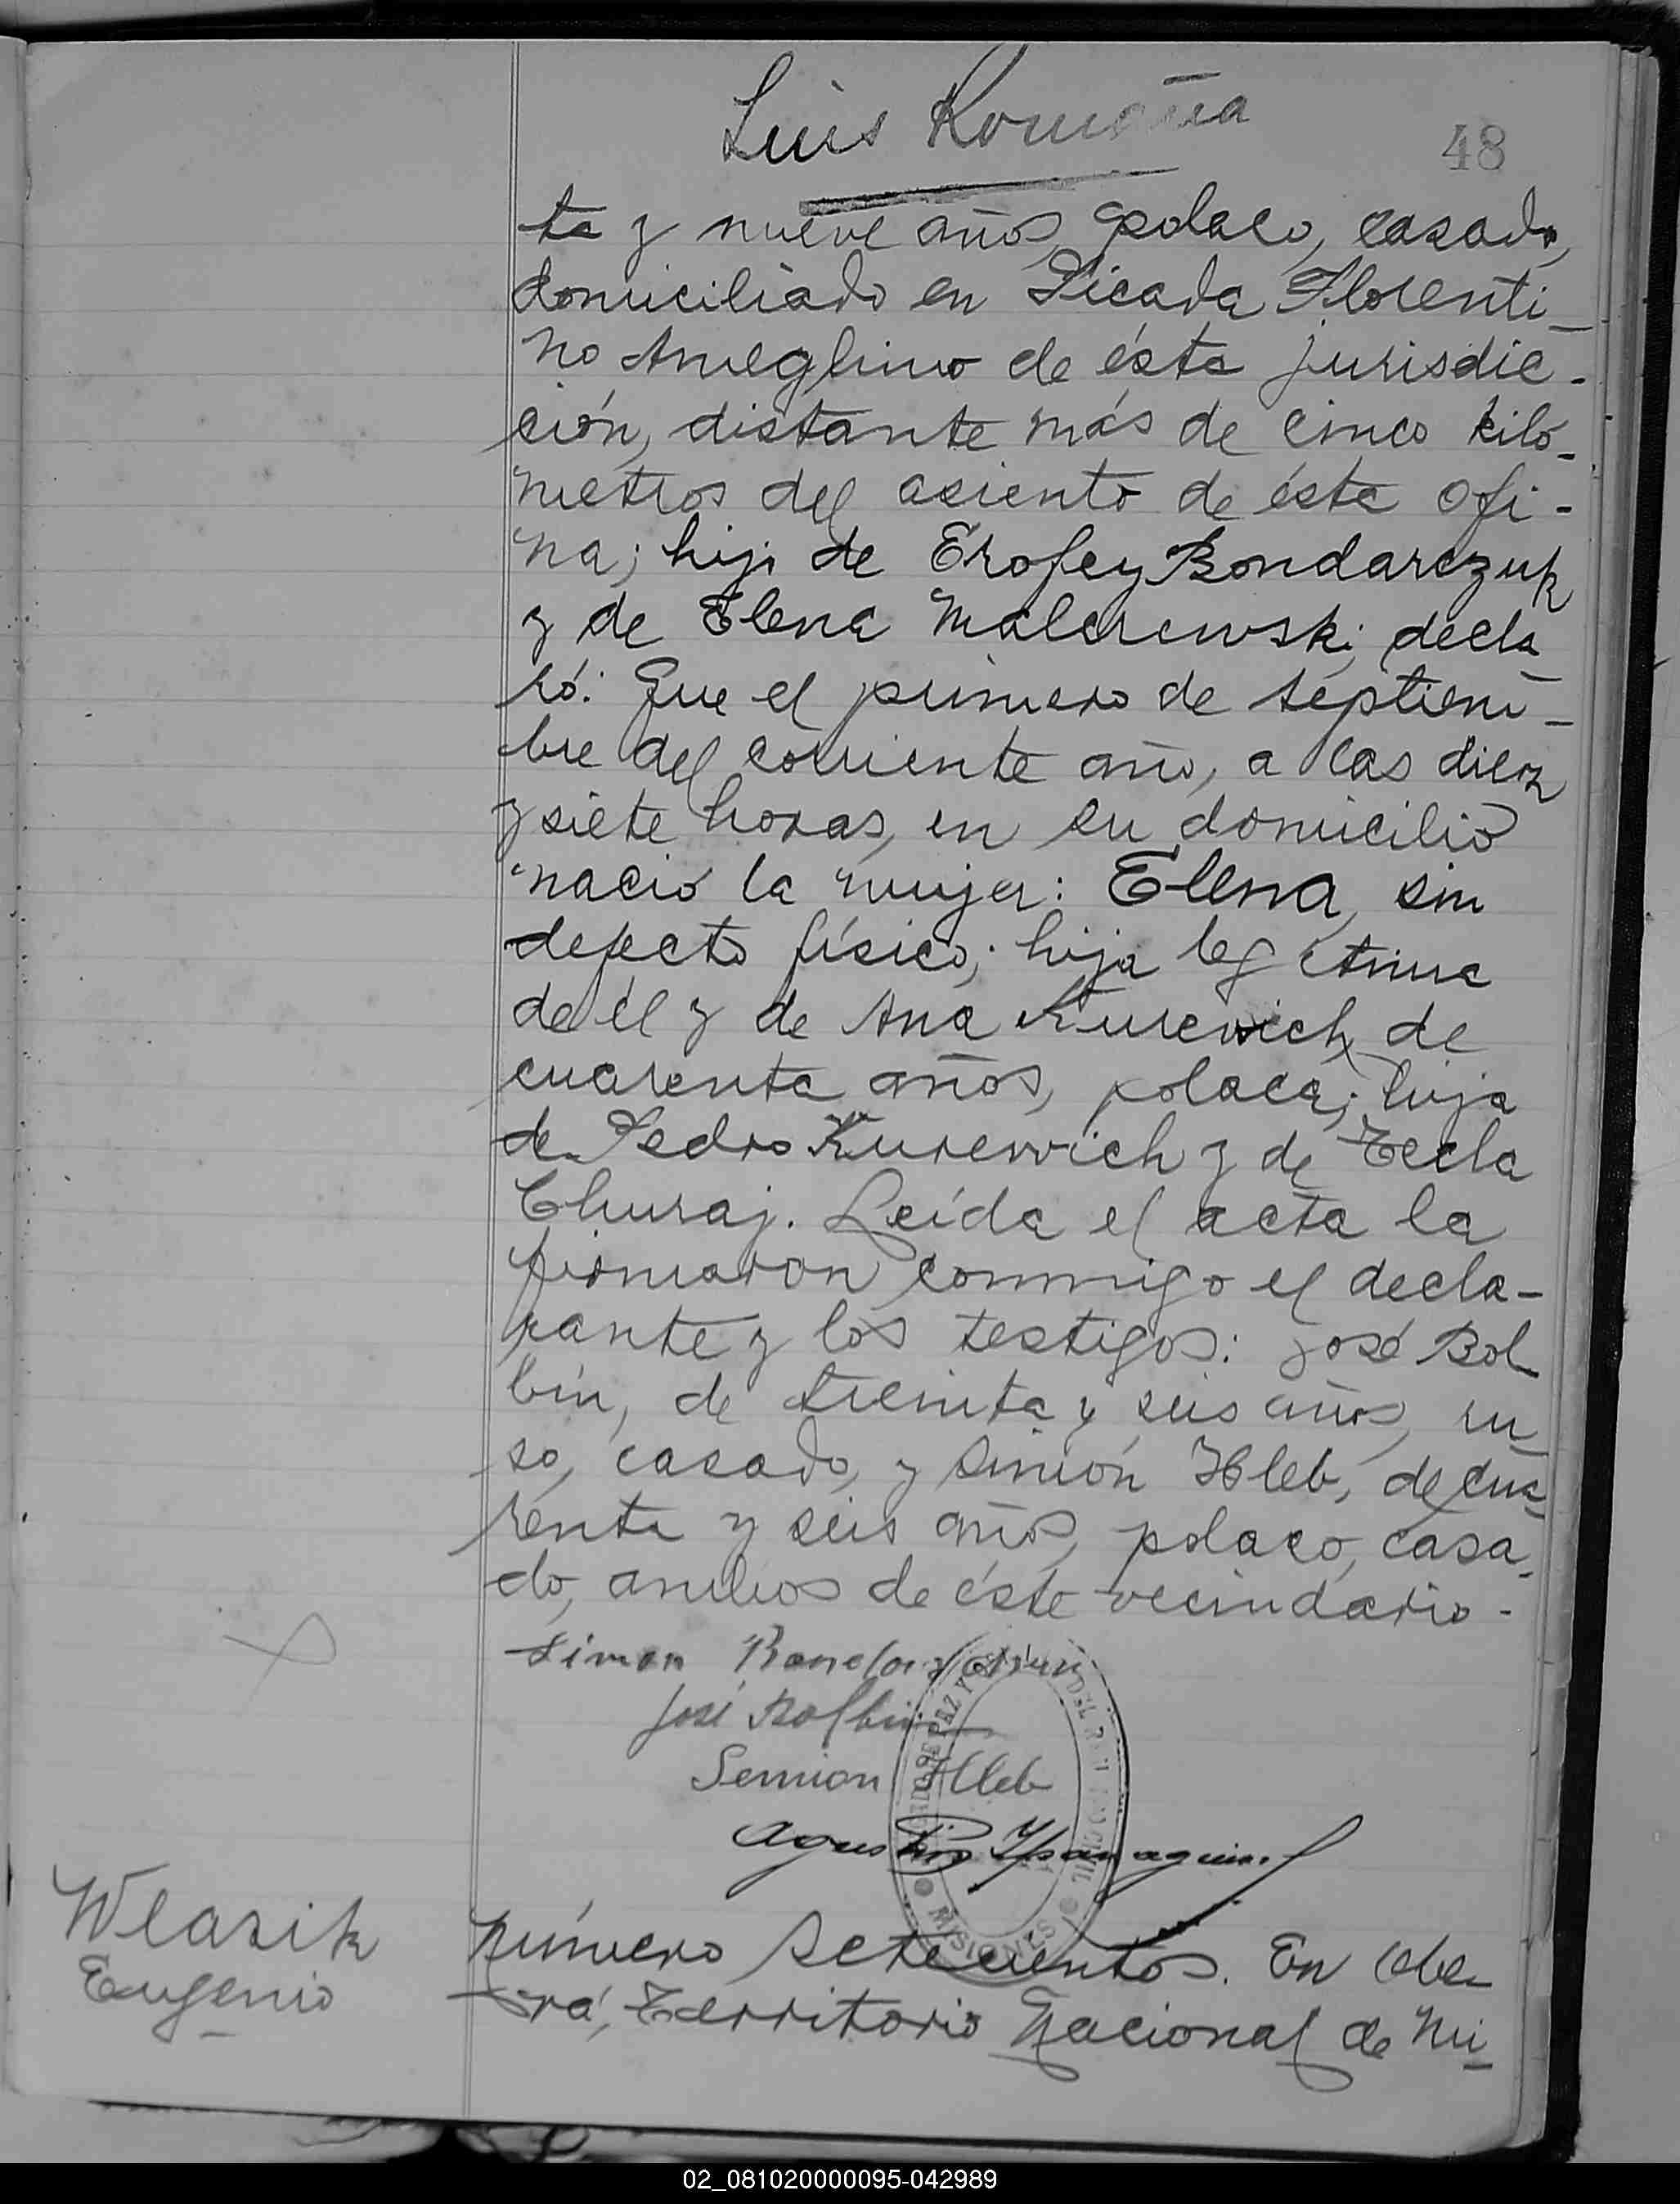 Luis Romaña
48
ta y nueve años, polaco, casado,
domiciliado en Picada Florenti-
no Ameghino de ésta jurisdic-
ción, distante más de cinco kiló-
metros del asiento de ésta ofi-
na; hijo de Erofey Bondarczuk
y de Elena Malcrewski; decla-
ró: Que el primero de septiem-
bre del corriente año, a las diez
y siete horas, en su domicilio
nació la mujer: Elena, sin
defecto físico; hija legítima
de él y de Ana Kurewich, de
cuarenta años, polaca; hija
de Pedro Kurewich y de Tecla
Churaj. Leída el acta la
firmaron conmigo el decla-
rante y los testigos: José Bol-
bin, de treinta y seis años, ru-
so, casado, y Simión Hleb, de cua-
renta y seis años, polaco, casa-
do, ambos de éste vecindario.
Simon
José Bolbin
Semion Hleb
Agustin
MISIONES
Wlasik
Eugenio
Número Setecientos. En Obe-
rá, Territorio Nacional de Mi-
02_081020000095-042989